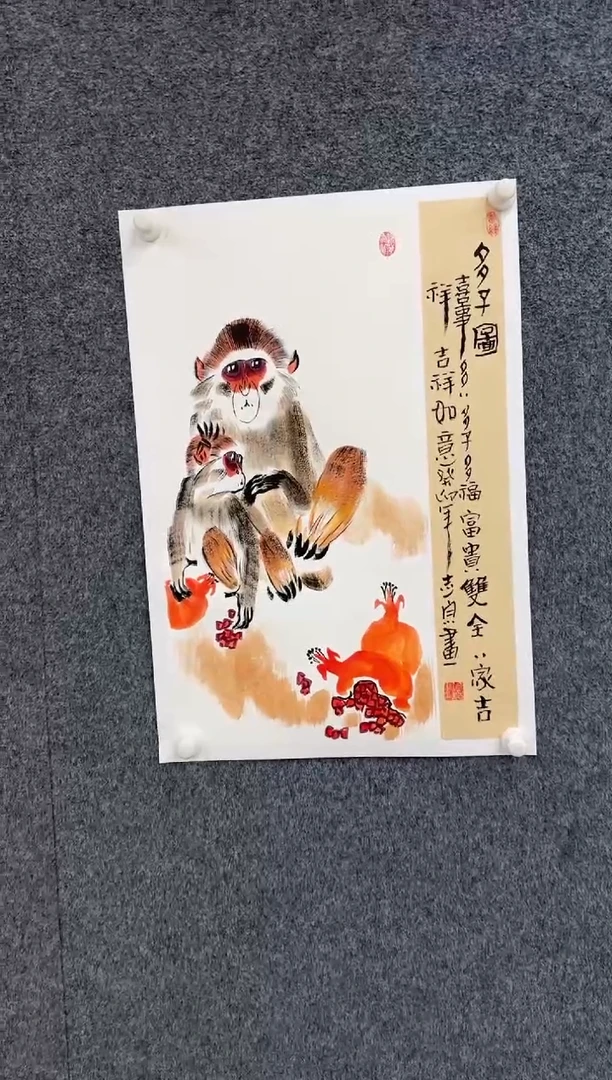 多子圖
喜事多〻多子多福富貴雙全〻家吉
祥吉祥如意癸卯年志畫